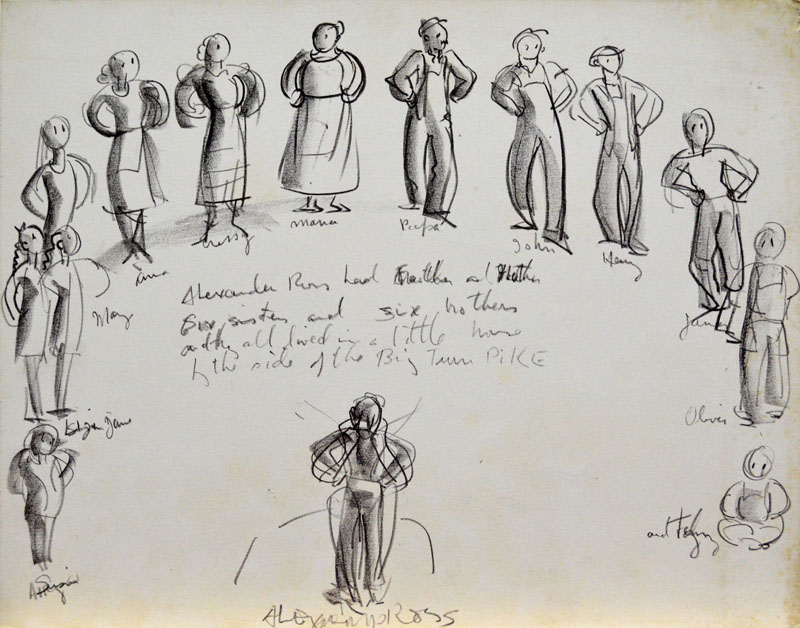 Mama
Papa
John
Henry
Anna
Chrissy
May
Jane
Oliver
Alexander Ross had Father and Mother
Six sisters and six brothers
and they all lived in a little house
by the side of the Big Turn PIKE
Jane
and
ALEXANDER ROSS